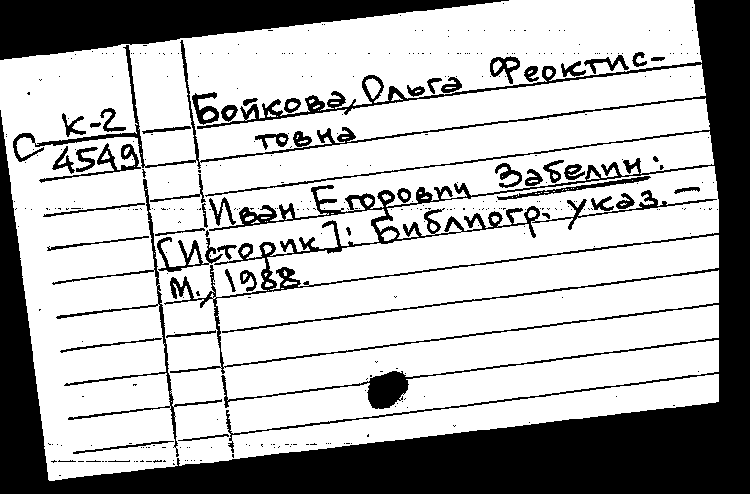 К-2
С 4549
Бойкова, Ольга Феоктис-
товна
Иван Егорович Забелин:
[Историк]: Библиогр. указ. —
М., 1988.